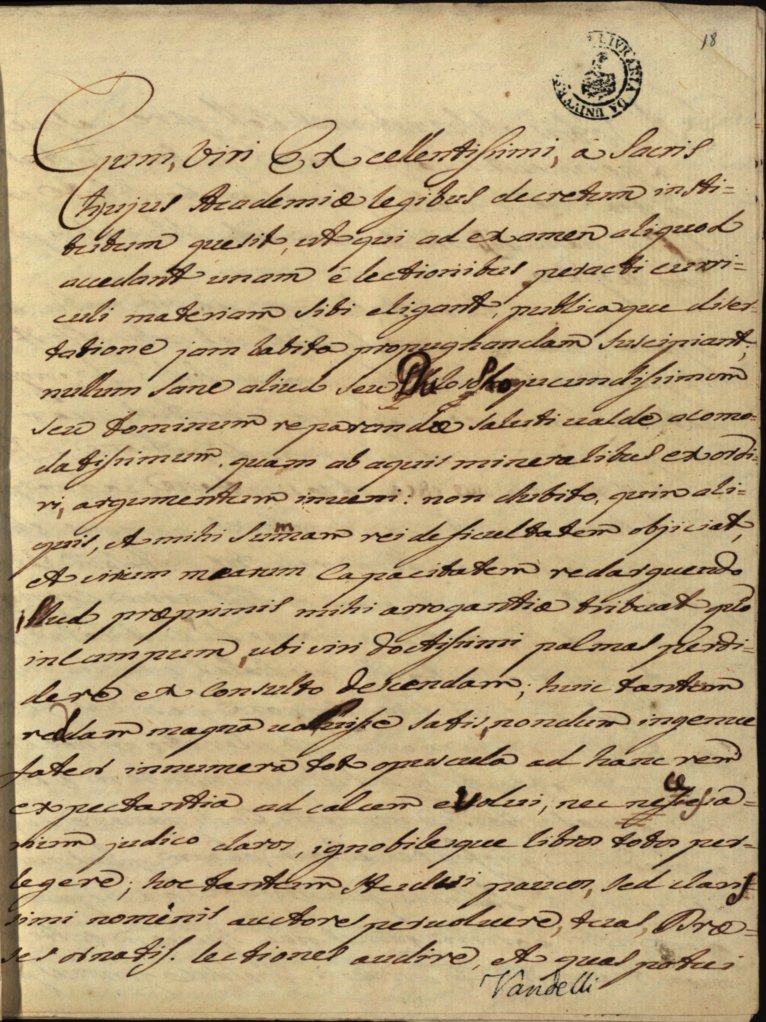 18
LIVRARIA DA UNIVER
Cum, Viri Excellentissimi, á Sacris
Hujus Academiæ legibus decretum insti-
tutum que sit, ut qui ad examen aliquod
accedant unam é lectionibus peracti curri-
culi materiam sibi eligant, publica que diser-
tatione jam habita propugnandam suscipiant;
nullum sane aliud seu jucundissimum
seu hominum reparandæ saluti valde acomo-
datissimum, quam ab aquis mineralibus exordi-
ri, argumentum inveni: non dubito, quin ali-
quis, et mihi Sumam rei deficultatem objiciat,
et virium mearum Capacitatem redarguendo
illud præprimis mihi arrogantiæ tribuat
in Campum, ubi viri doctissimi palmas perdi-
dere ex Consulto descendam; huic tantum
magna satis, nondum ingenue
fateor innumera tot opuscula ad hanc rem
expectantia ad calcem evolui, nec necessa-
rium judico claros, ignobilesque libros totos per-
legere; hoc tantum Studui paucos, sed claris-
simi nominis auctores pervolvere, tuas, Præ-
ses ornatis. lectiones audire, et quas potui
Vandelli